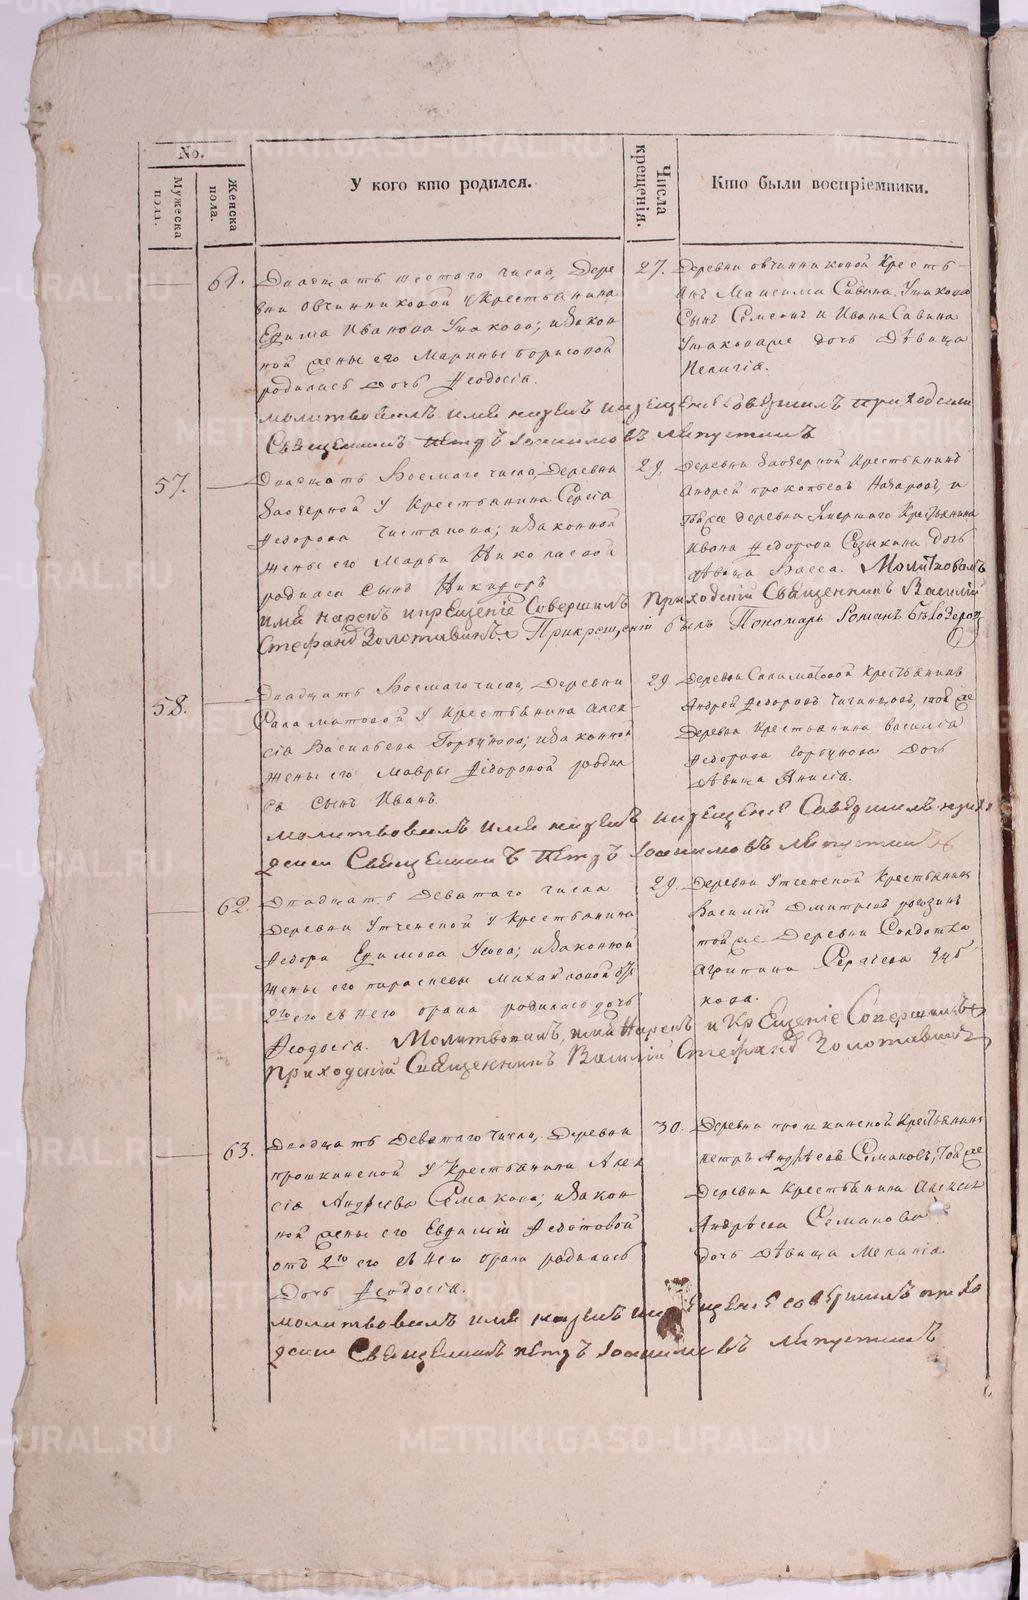 No.
Мужеска пола.
Женска пола.
У кого кто родился.
Числа крещенія.
Кто были воспріемники.
61.
Двадцать шестаго числа, Дере
вни Овчинниковой у Крестьянина
Ефима Иванова Ушакова; и закон
ной жены его Марины Борисовой
родилась дочь Феодосія.
27.
Деревни Овчинниковой Кресть
янъ Максима Савина Ушакова
Сынъ Семенъ и Ивана Савина
Ушакова же дочь Дѣвица
Пелагія.
молитвовалъ имя нарекъ и крещеніе совершилъ приходскій
Священникъ Петръ Іоакимовъ Ляпустинъ
57.
Двадцать восьмаго числа, Деревни
Заозерной у Крестьянина Сергія
Федорова Чистякова; и законной
жены его Марьи Николаевой
родился сынъ Никифоръ
29.
Деревни Заозерной Крестьянинъ
Андрей Прокопьевъ Назаровъ, и
той же деревни Крестьянина
Ивана Федорова дочь
дѣвица Васса. Молитвовалъ
имя нарекъ и крещеніе совершилъ приходскій Священникъ Василій
Стефановъ Золотавинъ. При крещеніи былъ Пономарь Романъ
58.
Двадцать восьмаго числа, Деревни
Саламатовой у Крестьянина Алек
сія Васильева Горбунова; и законной
жены его Мавры Федоровой родил
ся сынъ Иванъ.
29.
Деревни Саламатовой Крестьянинъ
Андрей Федоровъ той же
Деревни Крестьянина Василія
Федорова Горбунова дочь
дѣвица Анисія.
молитвовалъ имя нарекъ и крещеніе совершилъ прихо
дскій Священникъ Петръ Іоакимовъ Ляпустинъ
62.
Двадцать девятаго числа
деревни у Крестьянина
Федора Ефимова и законной
жены его Парасковьи Михайловой отъ
2го его съ нею брака родилась дочь
Феодосія. Молитвовалъ, имя нарекъ и крещеніе совершилъ
29.
Деревни Крестьянинъ
Василій Дмитріевъ Рогозинъ
той же Деревни Солдатка
Агрипина Сергіева Зуб
кова.
приходскій Священникъ Василій Стефановъ Золотавинъ
63.
Двадцать девятаго числа, Деревни
Прошкинской у Крестьянина Алек
сія Андреева Семакова; и закон
ной жены его Евфиміи Федотовой
отъ 2го его съ нею брака родилась
Дочь Феодосія.
30.
Деревни Прошкинской Крестьянинъ
Петръ Андреевъ Семаковъ, той же
Деревни Крестьянина Алексѣя
Андрѣева Семакова
дочь дѣвица Меланія.
молитвовалъ имя нарекъ и крещеніе совершилъ прихо
дскій Священникъ Петръ Іоакимовъ Ляпустинъ